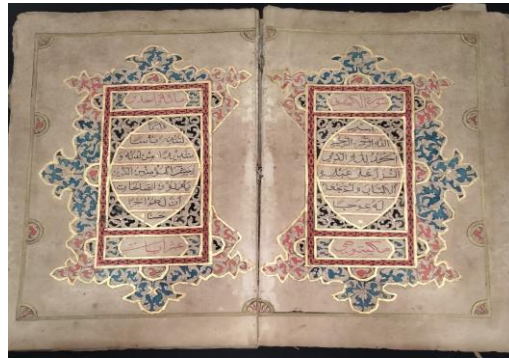 سورة الكهف
بسم
الله الرحمن الرحيم
الحمد لله الذي
أنزل على عبده
الكتاب ولم يجعل
له عوجا
قيما
لينذر بأسا
شديدا من لدنه و
يبشر المؤمنين الذين
يعملون الصالحات
أن لهم أجرا
حسنا